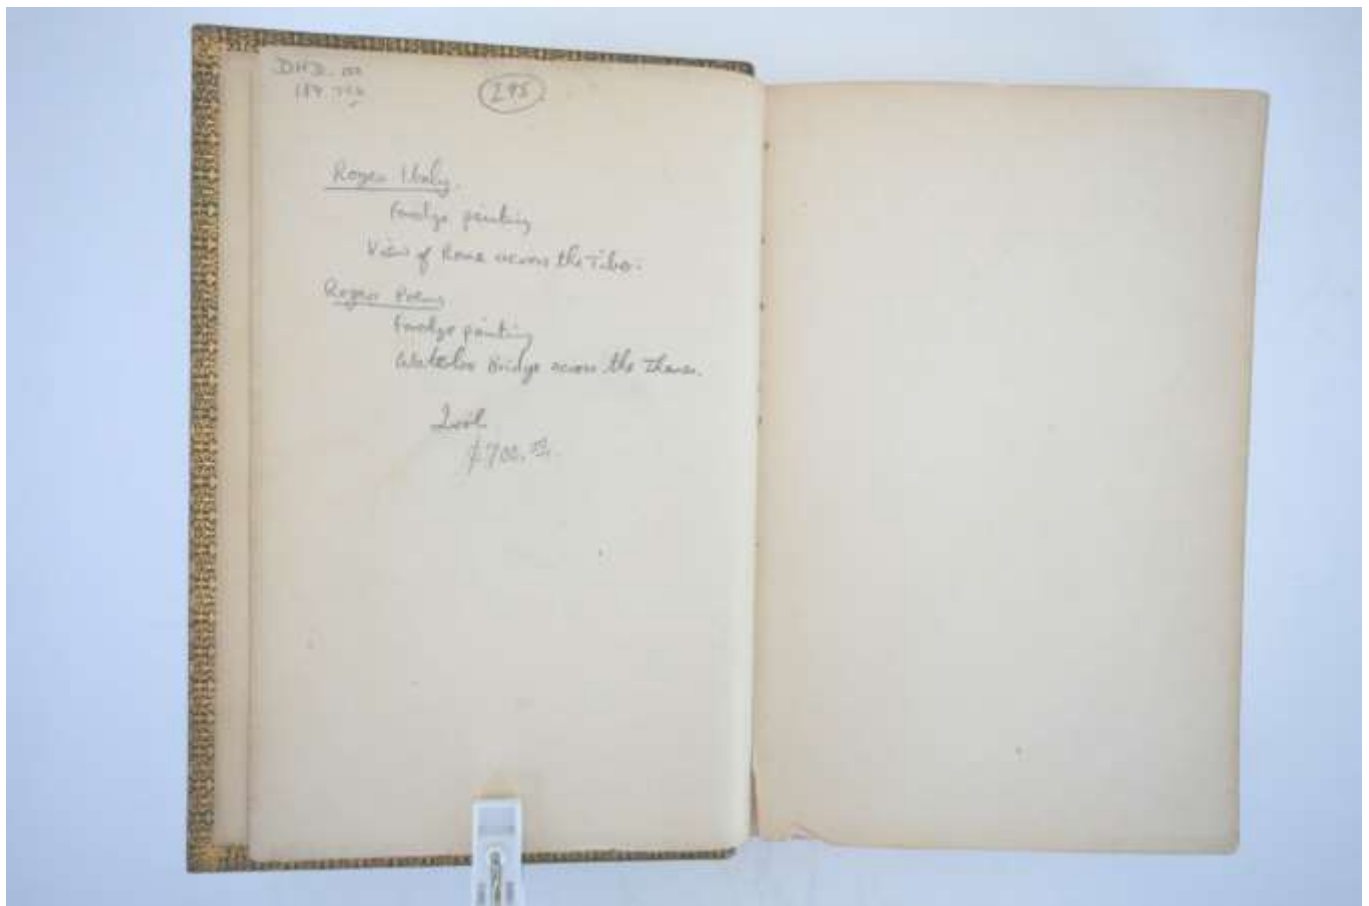 295
Rogers Italy.
Foredge painting
View of Rome across the Tiber.
Rogers Poems
Foredge painting
Waterloo Bridge across the Thames.
2 vol.
$700.